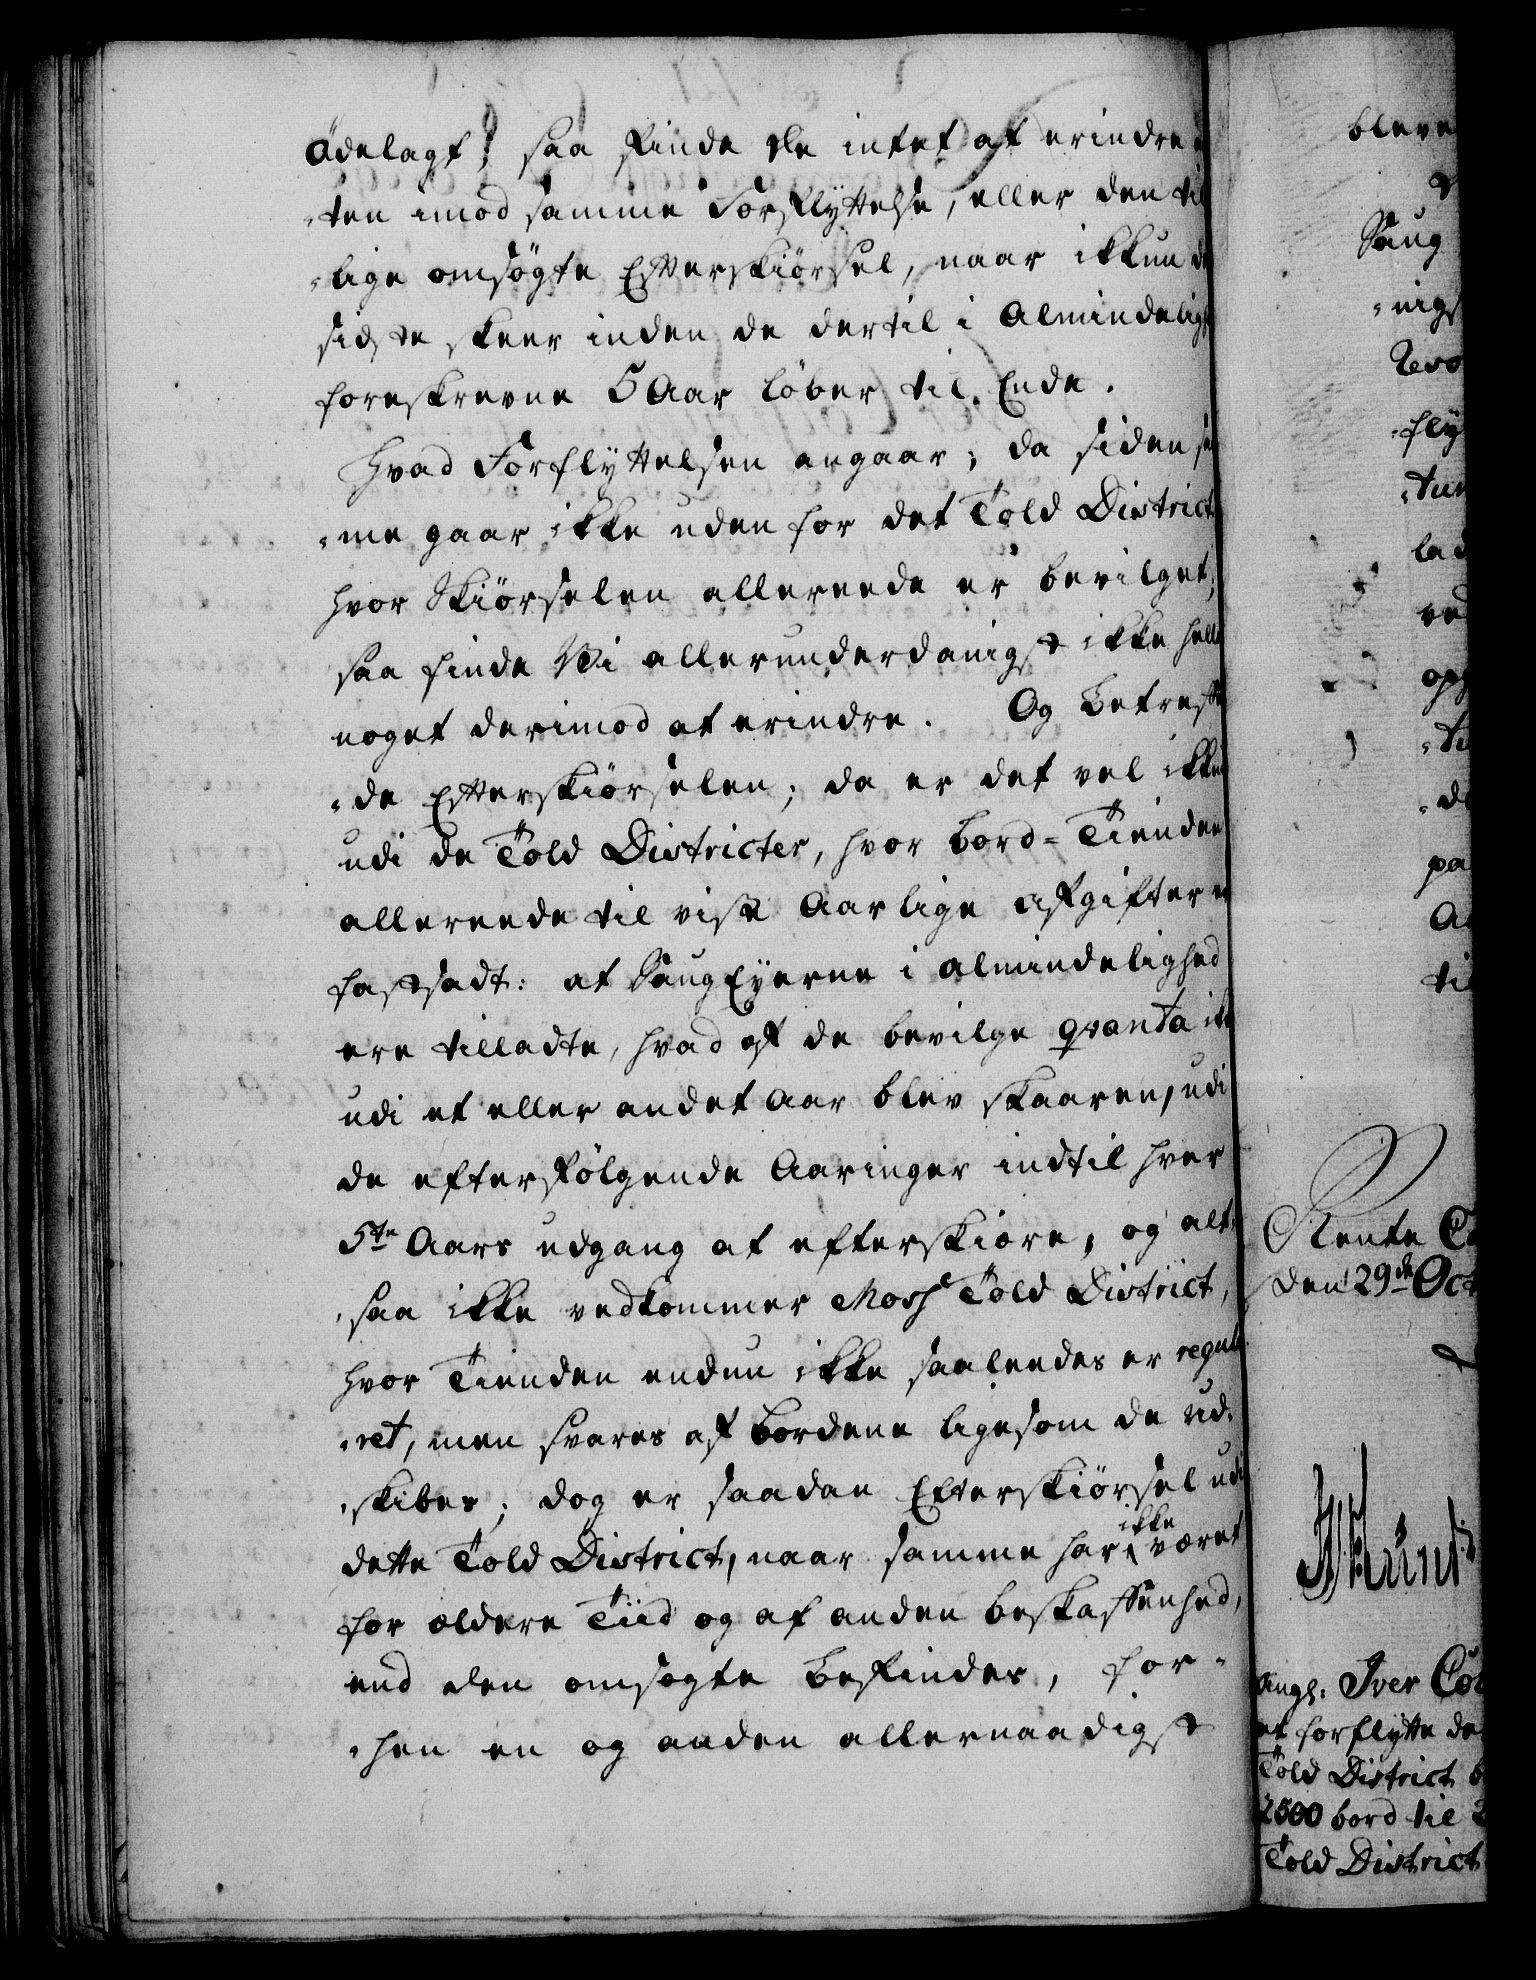 ødelagt; saa finde de intet at erindre
-ten imod samme Forflyttelse, eller den til
-lige omsøgte Efterskiørsel, naar ikkun
sidste skeer inden de dertil i Almindelig
foreskrevne 5 Aar løber til Ende.
Hvad Forflyttelsen angaar; da siden sam
-me gaar ikke uden for det Told District
hvor Skiørselen allereede er bevilget;
saa finde Wi allerunderdanigst ikke heller
noget derimod at erindre. Og betreffen
-de Efterskiørselen; da er det vel ikkun
udi de Told Districter, hvor bord-Tienden
allereede til visse Aarlige Afgifter er
fastsadt: at SaugEyerne i almindelighed
ere tilladte, hvad af de bevilge qvanta ikke
udi et eller andet Aar blev skaaren, udi
de efterfølgende Aaringer indtil hver
5te Aars udgang at efterskiøre, og alt-
-saa ikke vedkommer Moss Told District,
hvor Tienden endnu ikke saaledes er regule
-ret, men svares af bordene ligesom de ud-
-skibes; dog er saadan Efterskiørsel udi
dette Told District, naar samme har ikke været
for ældere Tiid og af anden beskaffenhed,
end den omsøgte befindes, for-
-hen en og anden allernaadigst
bleve
Saug
-nigs
-fly
-tur
lad
ved
opg
-de
pa
til
Rente Ca
den 29de Oct
Angl: Iver Col
at forflytte de
Told District b
2500 bord til
Told District